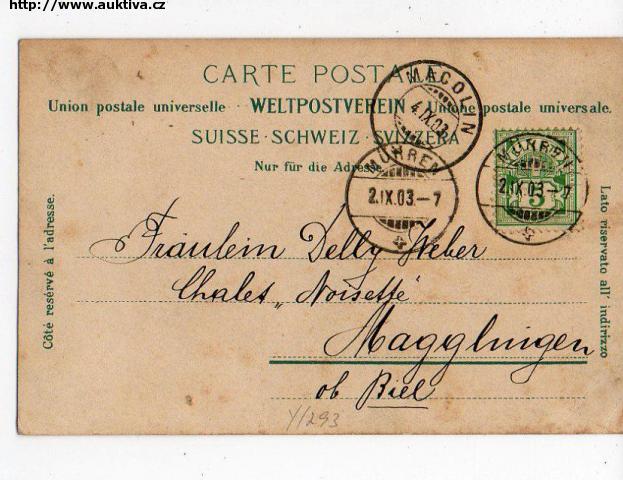 http://www.auktiva.cz
CARTE POSTALE
Union postale universelle · WELTPOSTVEREIN · Unione postale universale.
SUISSE · SCHWEIZ · SVIZZERA
Nur für die Adresse.
MAGGLIN
4.IX.03.
MÜRREN
2.IX.03.–7
MÜRREN
2.IX.03.–7
5
Côté reservé à l'adresse.
Lato riservato all' indirizzo
Fräulein Delly Weber
Chalet „Noisette"
Magglingen
ob Biel
Y/293